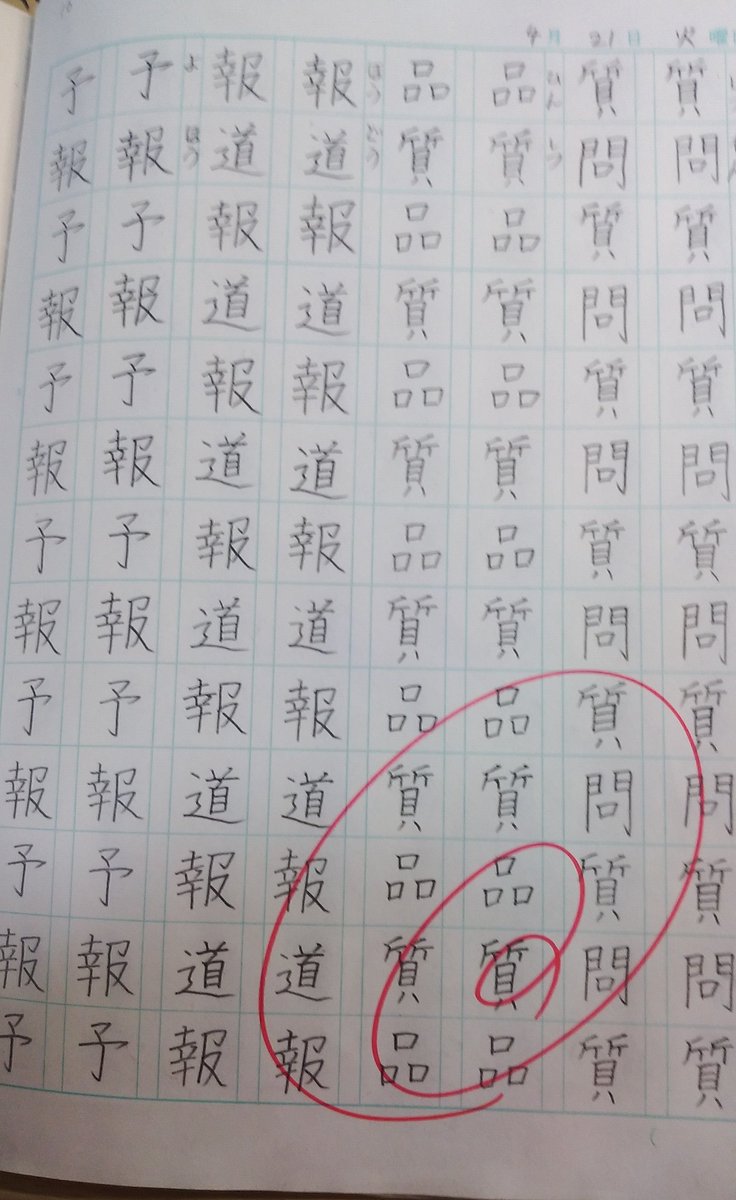 4月 21日 火曜
質問質問質問質問質問質問質
質問質問質問質問質問質問質
ひん しつ
品質品質品質品質品質品質品
品質品質品質品質品質品質品
ほう どう
報道報道報道報道報道報道報
報道報道報道報道報道報道報
よ ほう
予報予報予報予報予報予報予
予報予報予報予報予報予報予